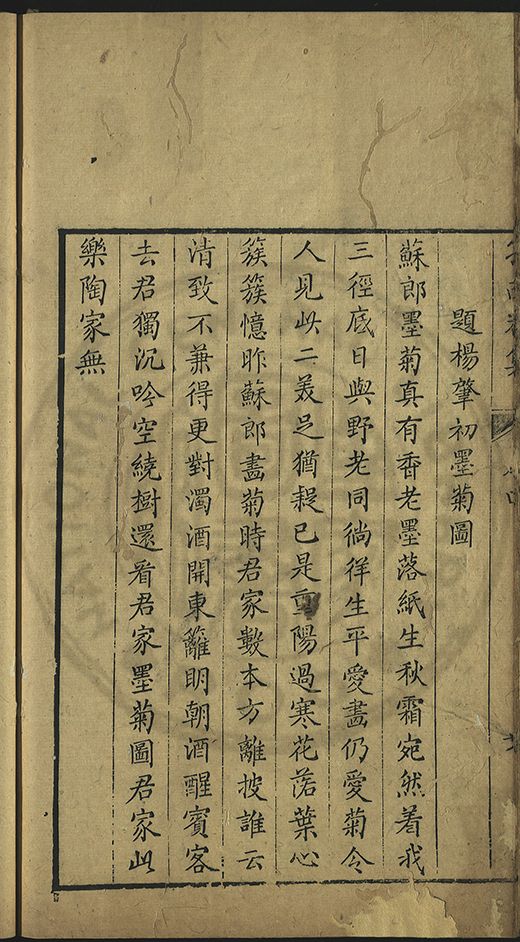 題楊肇初墨菊圖
蘇郎墨菊真有香老墨落紙生秋霜宛然着我
三徑底日與野老同徜徉生平愛畫仍愛菊今
人見此二美足猶疑已是重陽過寒花落葉心
簇簇憶昨蘇郎畫菊時君家數本方離披誰云
清致不兼得更對濁酒開東籬明朝酒醒賓客
去君獨沉吟空繞樹還看君家墨菊圖君家此
樂陶家無